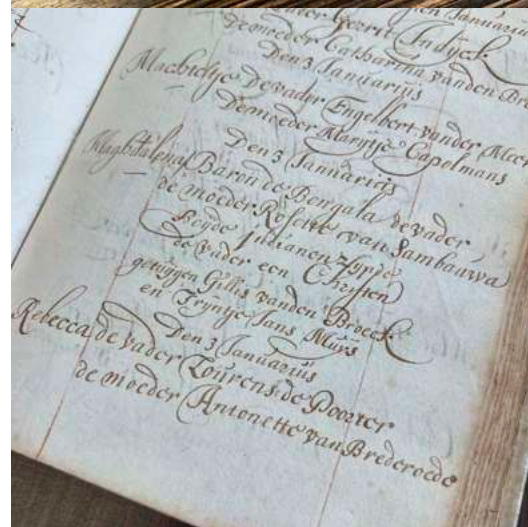 Januarius
de vader Gerrit Indyck
de moeder Catharina vanden Br
Den 3 Januarius
Machieltje De vader Engelbert vander Meer
De moeder Marijtje Capelmans
Den 3 Januarius
Maghtalena Baron de Bengala de vader
de moeder Rosette van Sambauwa
Beyde Indianen zynde
de vader een Christen)
getuygen Gillis vanden Broeck
en Tryntje Jans Muijs
Den 3 Januarius
Rebecca de vader Lourens de Poorter
de moeder Antonette van Brederoede